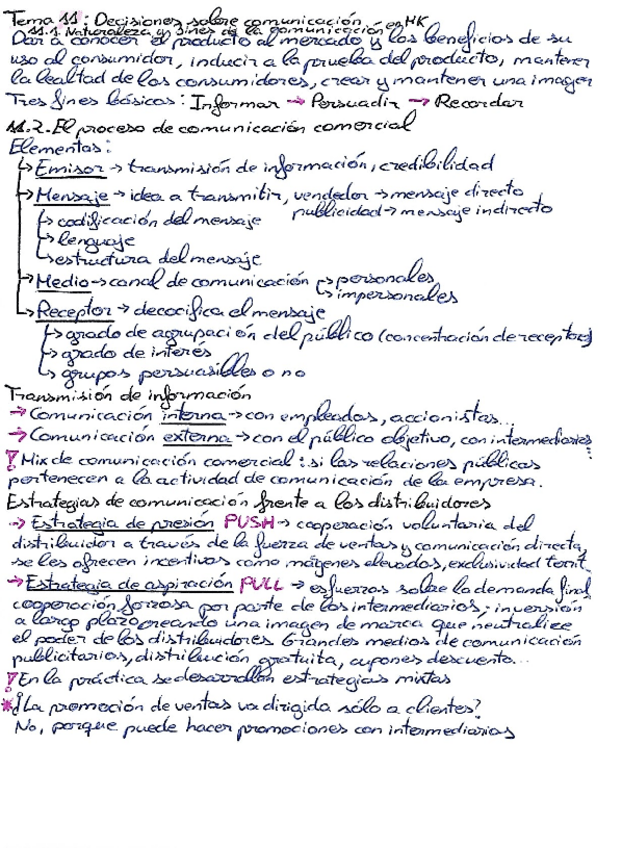 Tema 11: Decisiones sobre comunicación en MK
11.1. Naturaleza y fines de la comunicación
Dar a conocer el producto al mercado y los beneficios de su
uso al consumidor, inducir a la prueba del producto, mantener
la lealtad de los consumidores, crear y mantener una imagen
Tres fines básicos: Informar → Persuadir → Recordar
11.2. El proceso de comunicación comercial
Elementos:
↳ Emisor → transmisión de información, credibilidad
↳ Mensaje → idea a transmitir, vendedor → mensaje directo
publicidad → mensaje indirecto
↳ codificación del mensaje
↳ lenguaje
↳ estructura del mensaje
↳ Medio → canal de comunicación ↱ personales
↳ impersonales
↳ Receptor → decocifica el mensaje
↳ grado de agrupación del público (concentración de receptores)
↳ grado de interés
↳ grupos persuasibles o no
Transmisión de información
→ Comunicación interna → con empleados, accionistas...
→ Comunicación externa → con el público objetivo, con intermediarios
! Mix de comunicación comercial: si las relaciones públicas
pertenecen a la actividad de comunicación de la empresa.
Estrategias de comunicación frente a los distribuidores
→ Estrategia de presión PUSH → cooperación voluntaria del
distribuidor a través de la fuerza de ventas y comunicación directa,
se les ofrecen incentivos como márgenes elevados, exclusividad territ.
→ Estrategia de aspiración PULL → esfuerzos sobre la demanda final,
cooperación forzosa por parte de los intermediarios; inversión
a largo plazo creando una imagen de marca que neutralice
el poder de los distribuidores. Grandes medios de comunicación
publicitarios, distribución gratuita, cupones descuento...
! En la práctica se desarrollan estrategias mixtas
* ¿La promoción de ventas va dirigida sólo a clientes?
No, porque puede hacer promociones con intermediarios